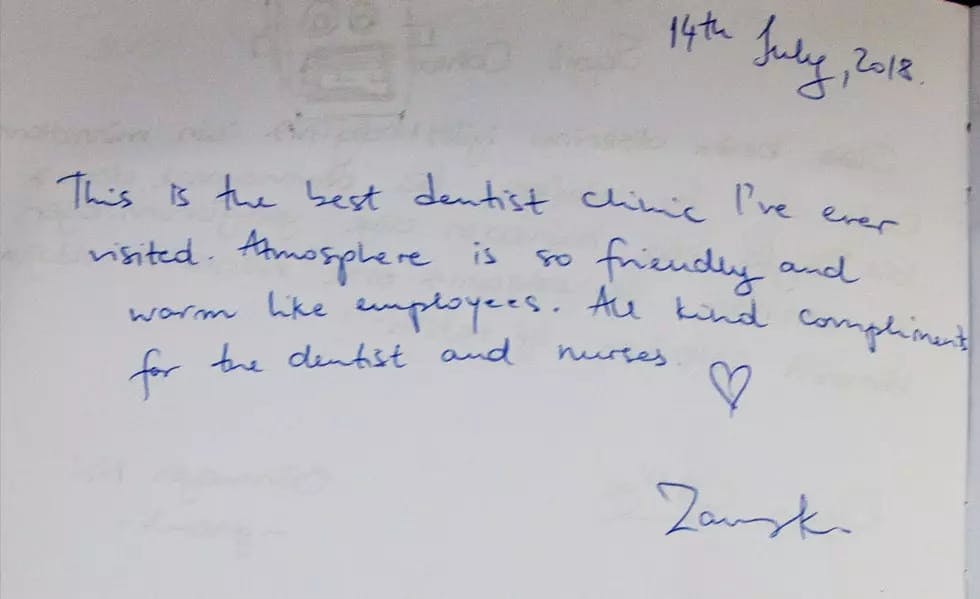 14th July, 2018.
This is the best dentist clinic I've ever
visited. Atmosphere is so friendly and
warm like employees. All kind compliments
for the dentist and nurses.